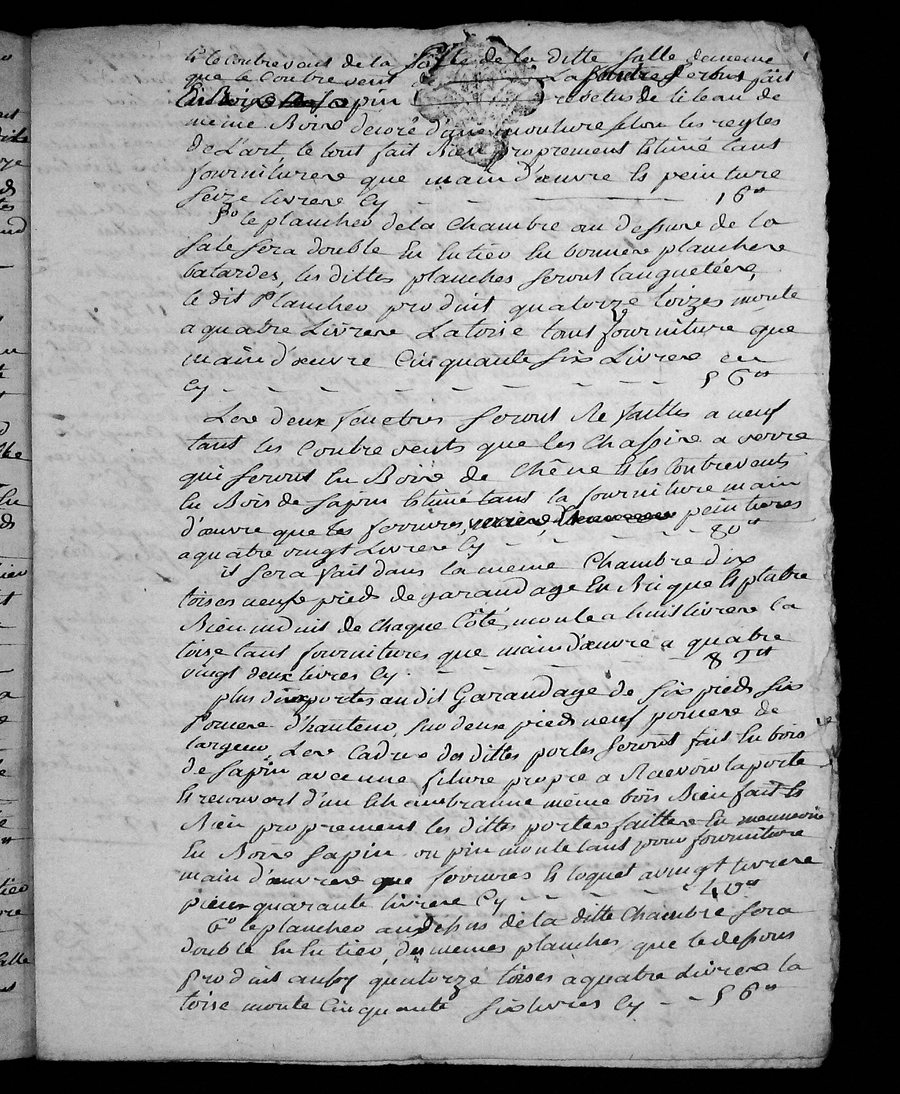 le contrevent de la salle de la ditte salle de meme
que le contre vent La seront fait
En Bois sapin revetus de liteau de
même Boire decoré d'une mouture selon les regles
de L'art, le tout fait Bien proprement Estimé tant
fourniturere que main d'œuvre Es peinture
seize livrere Cy - - - 16ᵗᵗ
5° le plancher de la chambre au dessure de la
sale sera double En Entier En bonnere planchere
batardes, les dittes planches seront languetéere,
le dit Plancher produit quatorze toizes monte
a quatre Livrere La toise tant fourniture que
main d'œuvre Cinquante six Livrere
Cy - - - - - - - - 56ᵗᵗ
Lere deux fenetres seront Re faittes a neuf
tant les Contre vents que les Chassire a verre
qui seront En Boire de Chêne Et les Contrevents
En Bois de sapin Estimé tant la fourniture main
d'œuvre que les ferrures, peintures
a quatre vingt Livrere Cy - - - - - 80ᵗᵗ
il sera fait dans la meme Chambre dix
toises neuf pieds de garandage En Brique Et platre
Bien induit de chaque Côté, monte a huit livrere la
toise tant fournitures que main d'œuvre a quatre
vingt deux livres Cy - - - 82ᵗᵗ
plus deux portes au dit Garandage de six pieds six
Poucere d'hauteur, sur deux pieds neuf poucere de
largeur, Lere Cadre des dittes portes seront fait En bois
de sapin avec une filure propre a Recevoir la porte
Et recouvert d'un Chambranne même bois Bien fait Et
Bien proprement les dittes portere faittere En menuserie
En Boire sapin ou pin monte tant pour fourniture
main d'œuvrere que ferrures Et loquet a vingt livrere
piece quarante livrere Cy - - - 40ᵗᵗ
6° le plancher au dessus de la ditte Chambre sera
double En Entier, des memes planches que le dessous
Produit aussy quatorze toises a quatre Livrere la
toise monte Cinquante six livres Cy - - 56ᵗᵗ